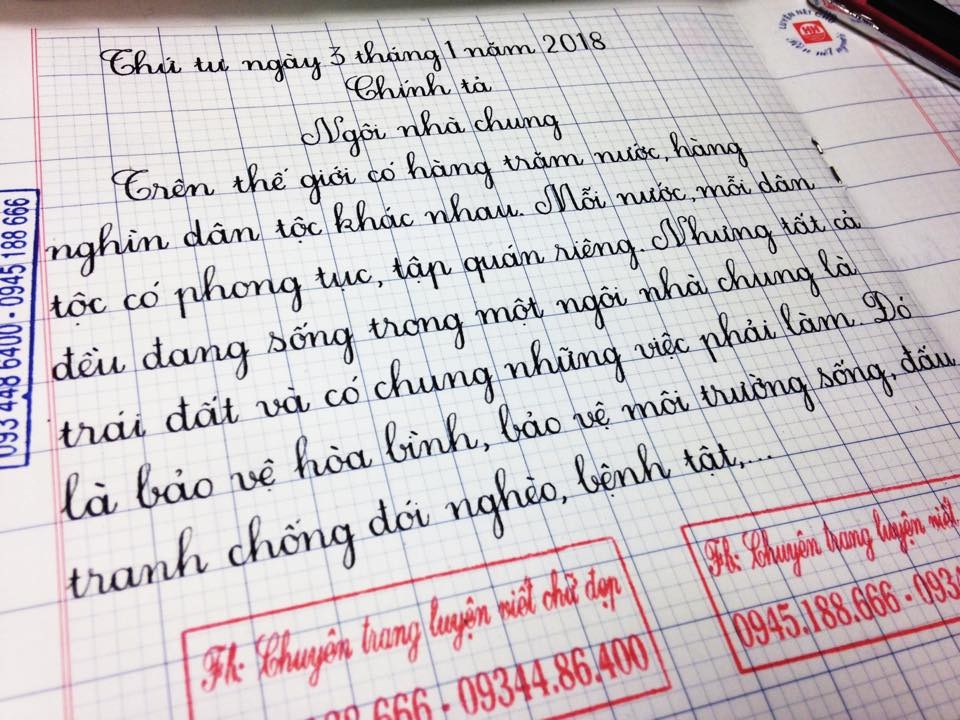 Thứ tư ngày 3 tháng 1 năm 2018
Chính tả
Ngôi nhà chung
Trên thế giới có hàng trăm nước, hàng
nghìn dân tộc khác nhau. Mỗi nước, mỗi dân
tộc có phong tục, tập quán riêng. Nhưng tất cả
đều đang sống trong một ngôi nhà chung là
trái đất và có chung những việc phải làm. Đó
là bảo vệ hòa bình, bảo vệ môi trường sống, đấu
tranh chống đói nghèo, bệnh tật,...
093 448 6400 - 0945 188 666
Fb: Chuyên trang luyện viết chữ đẹp
188.666 - 09344.86.400
Fb: Chuyên trang luyện viết
0945.188.666 - 093
LUYỆN NÉT CHỮ
RÈN NẾT NGƯỜI